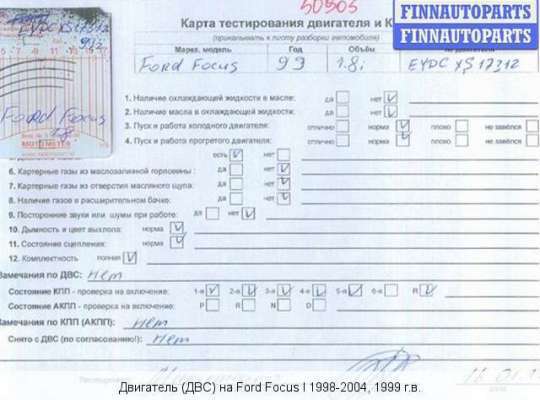 50503
FINNAUTOPARTS
FINNAUTOPARTS
Карта тестирования двигателя и К
(прикалывать к листу разборки автомобиля)
Марка, модель Год Объём двигателя
Ford Focus 99 1.8i EYDC XS17312
EYDC XS17312
99г
Ford Focus
1.8
MOTOMETER
1. Наличие охлаждающей жидкости в масле: да нет
2. Наличие масла в охлаждающей жидкости: да нет
3. Пуск и работа холодного двигателя: отлично норма плохо не завёлся
4. Пуск и работа прогретого двигателя: отлично норма плохо не завёлся
есть нет
6. Картерные газы из маслозаливной горловины: да нет
7. Картерные газы из отверстия масляного щупа: да нет
8. Наличие газов в расширительном бачке: да нет
9. Посторонние звуки или шумы при работе: да нет
10. Дымность и цвет выхлопа: норма
11. Состояние сцепления: норма
12. Комплектность полная
Замечания по ДВС: нет
Состояние КПП - проверка на включение: 1-я 2-я 3-я 4-я 5-я 6-я R
Состояние АКПП - проверка на включение: P R N D
Замечания по КПП (АКПП): нет
Снято с ДВС (по согласованию!): нет
Двигатель (ДВС) на Ford Focus I 1998-2004, 1999 г.в.